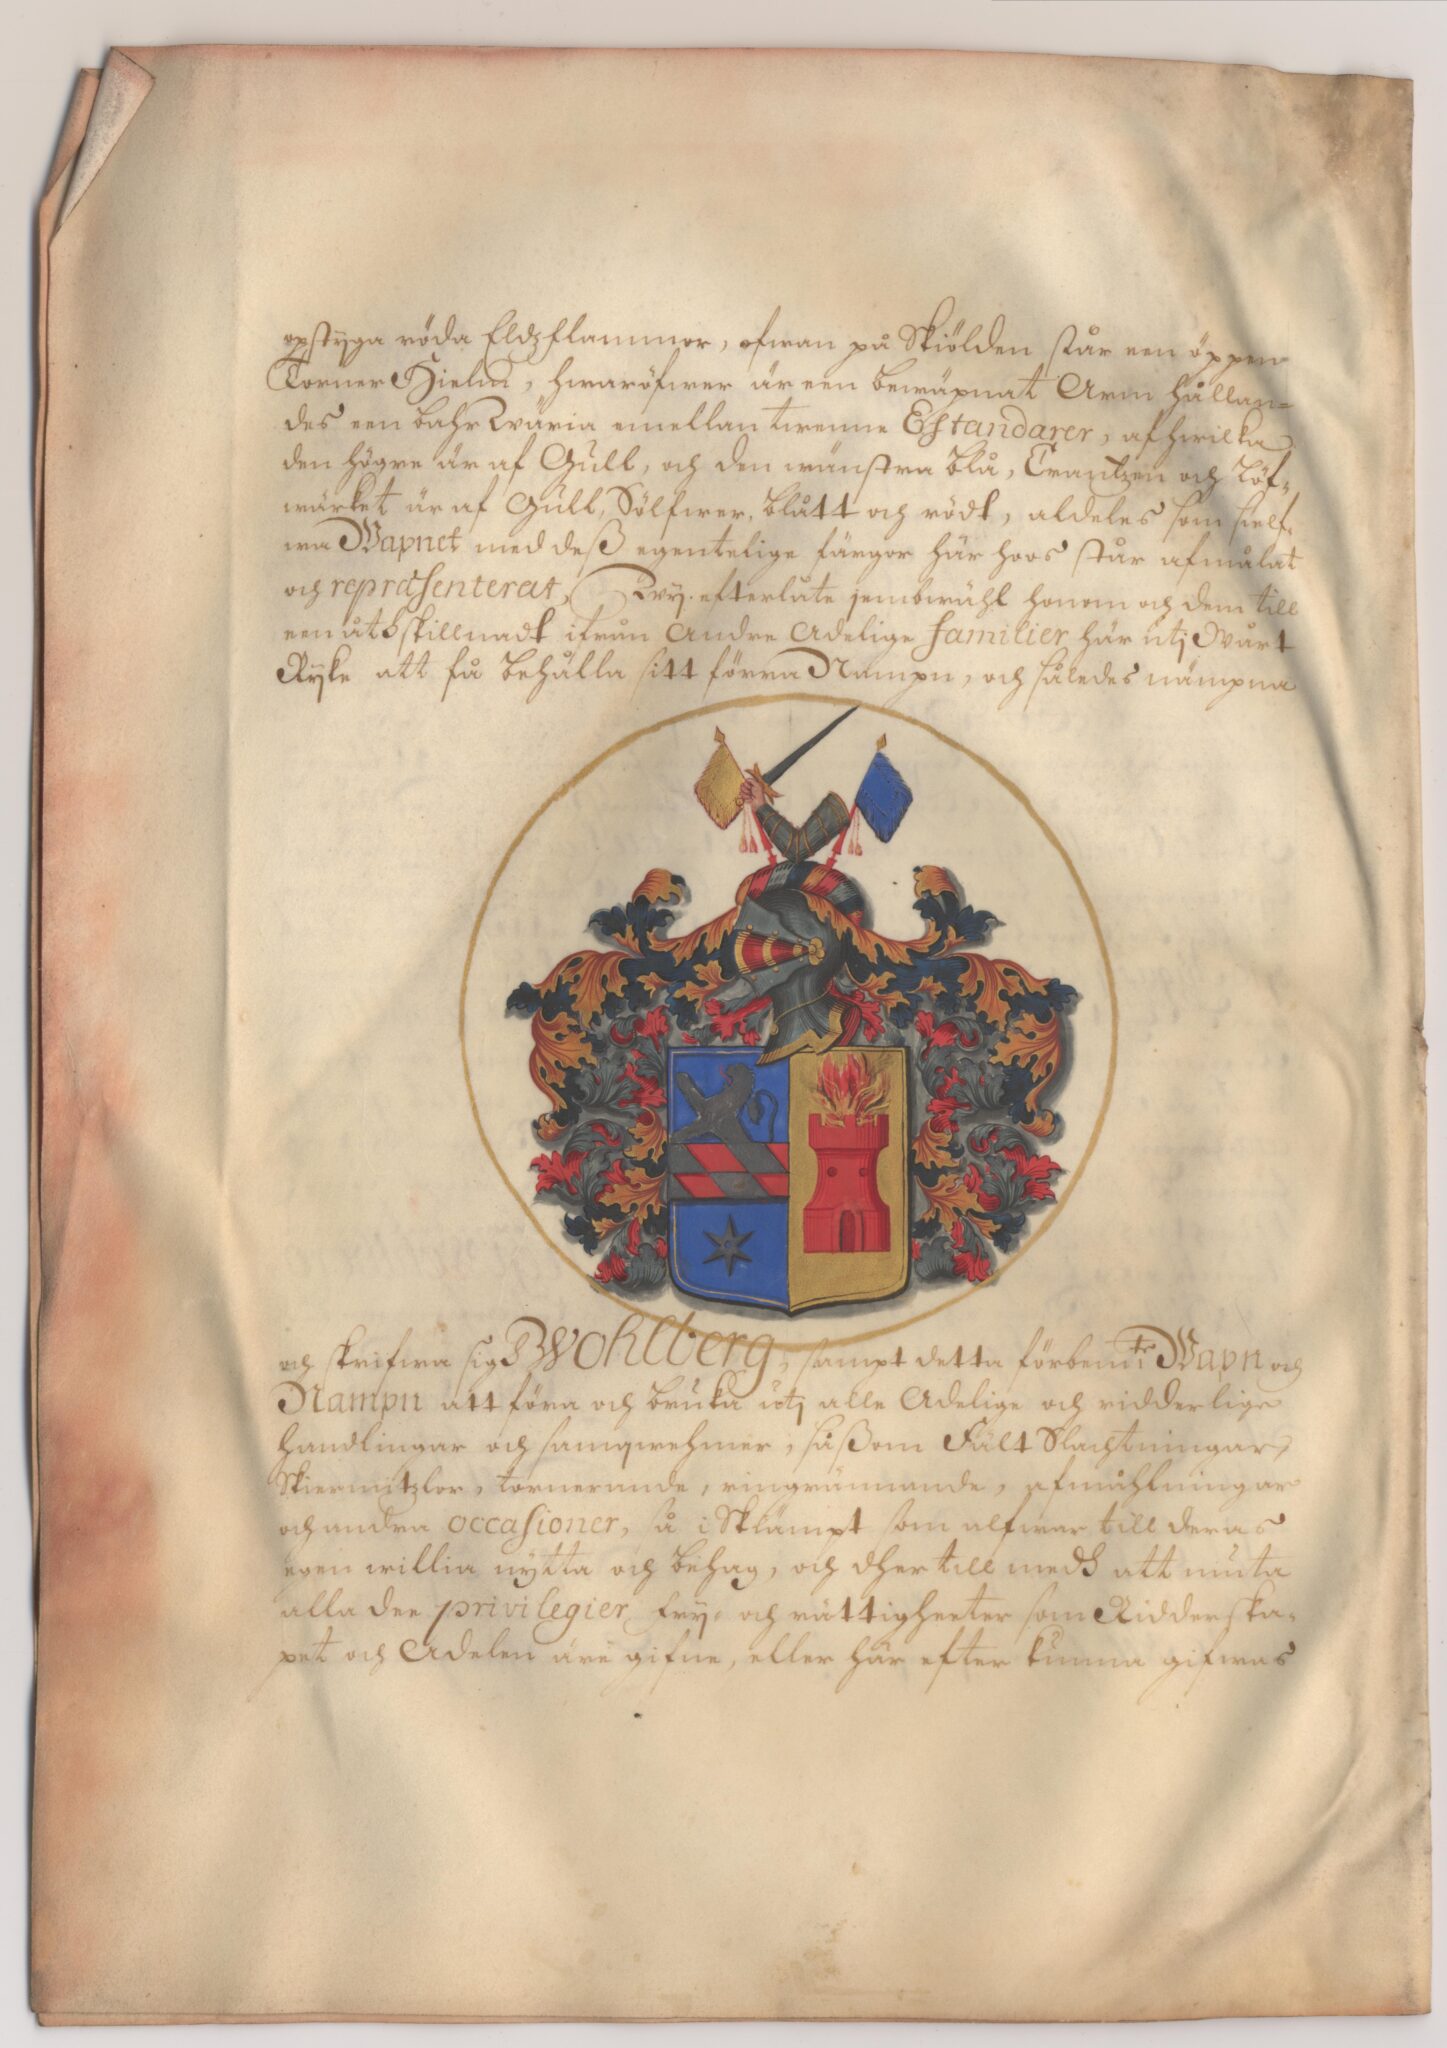 opstyga röda Eldzflammor, ofwan på Skiölden står een öppen
Torner Hielm, hwaröfwer är een bewäpnat Arm hållan=
des een bahr Wäria emellan twenne Estandarer, af hwilka
den högre är af Gull, och den wänstra blå, Crantzen och Löf-
wärket är af Gull, Sölfwer, blått och rödt, aldeles som sielf-
wa Wapnet med deß egentelige färgor här hoos står afmålat
och repræsenterat, Wij efterlåte jembwähl honom och dem till
een åthskillnadt ifrån andre Adelige familier här utj Wårt
Ryke att få behålla sitt förra Nampn, och således nämpna
och skrifwa sig Wohlberg, sampt detta förbemte Wapn och
Nampn att föra och bruka utj alle Adelige och ridderlige
handlingar och samqwehmer, såßom Fält Slachtningar,
Skiermitzlor, tornerande, ringrännande, afmåhlningar
och andra occasioner, så i Skiämpt som alfwar till deras
egen willia nytta och behag, och dher till medh att niuta
alla dee privilegier fry- och rättigheeter som Ridderska-
pet och Adelen äre gifne, eller här efter kunna gifwas